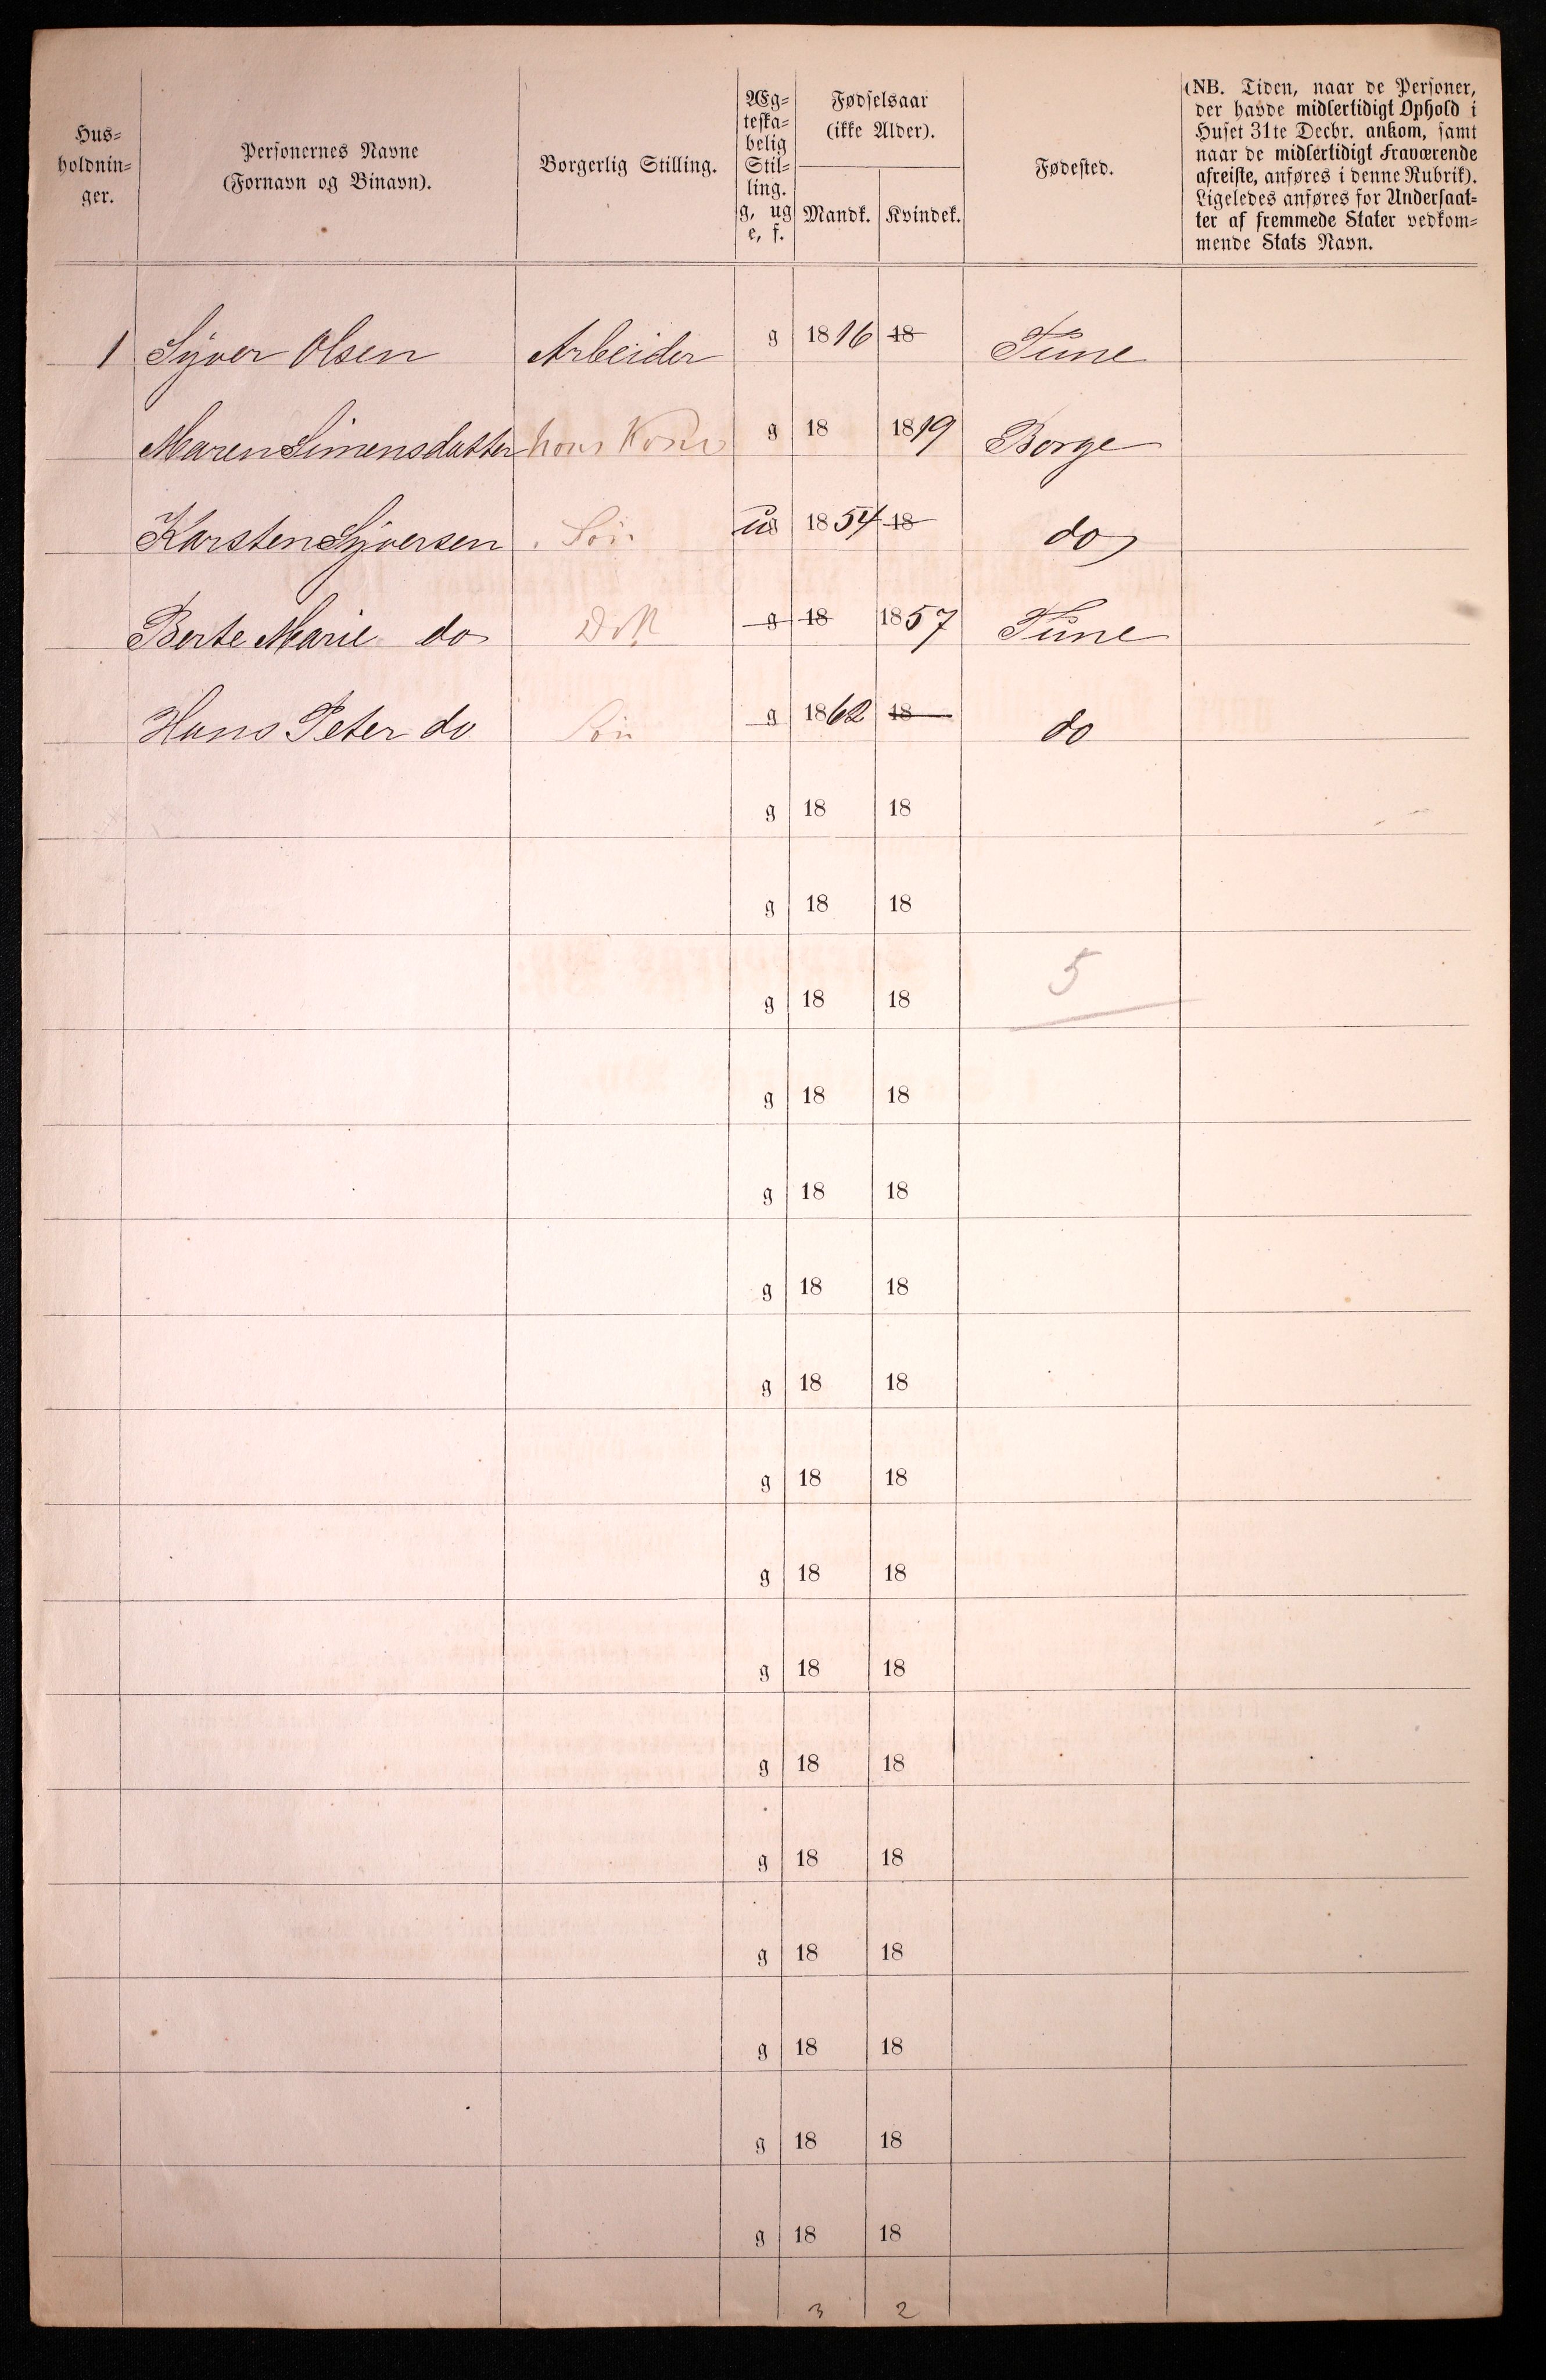 Hus=
holdnin=
ger.
Personernes Navne
(Fornavn og Binavn).
Borgerlig Stilling.
Æg=
teska=
belig
Stil=
ling.
g, ug
e, f.
Fødselsaar
(ikke Alder).
Mandk. Kvindek.
Fødested.
(NB. Tiden, naar de Personer,
der havde midlertidigt Ophold i
Huset 31te Decbr. ankom, samt
naar de midlertidigt Fraværende
afreiste, anføres i denne Rubrik).
Ligeledes anføres for Undersaat=
ter af fremmede Stater vedkom=
mende Stats Navn.
1 Syver Olsen Arbeider g 1816 18 Tune
Maren Simensdatter hans Kone g 18 1819 Borge
Karsten Syversen Søn ug 1854 18 do
Berte Marie do Dtt g 18 1857 Tune
Hans Peter do Søn g 1862 18 do
g 18 18
g 18 18
g 18 18 5
g 18 18
g 18 18
g 18 18
g 18 18
g 18 18
g 18 18
g 18 18
g 18 18
g 18 18
g 18 18
g 18 18
g 18 18
g 18 18
3 2